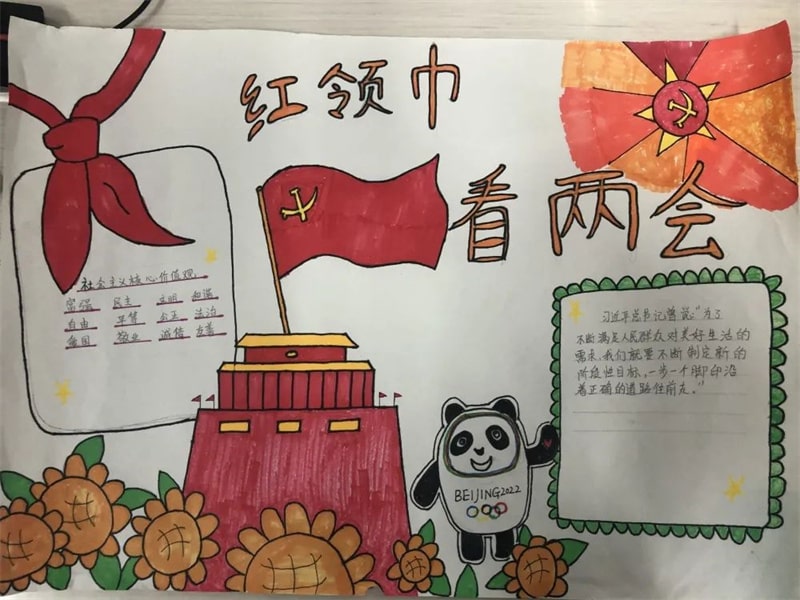 红领巾
看两会
社会主义核心价值观:
富强 民主 文明 和谐
自由 平等 公正 法治
爱国 敬业 诚信 友善
习近平总书记曾说:“为了
不断满足人民群众对美好生活的
需求,我们就要不断制定新的
阶段性目标,一步一个脚印沿
着正确的道路往前走。”
BEIJING2022